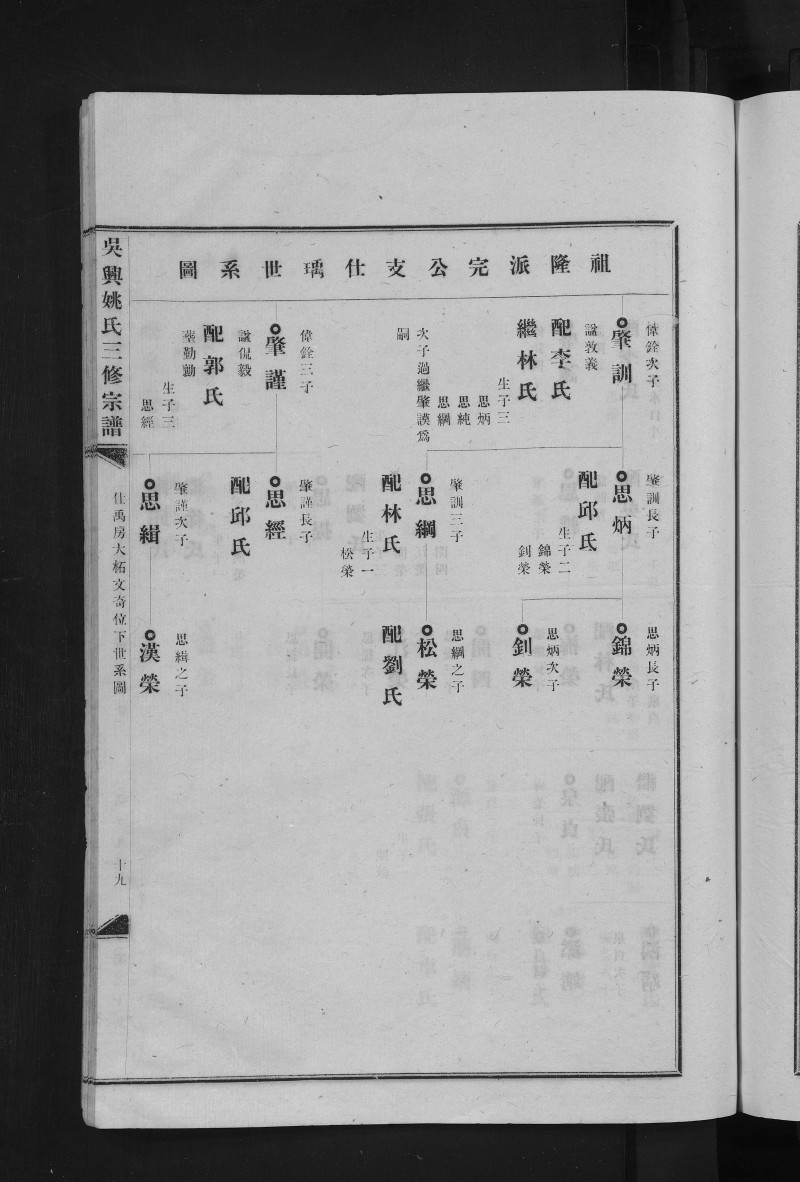 祖隆派完公支仕瑀世系圖
偉銓次子
肇訓
諡敦義
配李氏
繼林氏
生子三
思炳
思純
思綱
次子過繼肇謨爲
嗣
偉銓三子
肇謹
諡侃毅
配郭氏
勤勷
生子三
思經
肇訓長子
思炳
配邱氏
生子二
錦榮
釗榮
肇訓三子
思綱
配林氏
生子一
松榮
肇謹長子
思經
配邱氏
肇謹次子
思緝
思炳長子
錦榮
思炳次子
釗榮
思綱之子
松榮
配劉氏
思緝之子
漢榮
吳興姚氏三修宗譜
仕禹房大柘文奇位下世系圖
十九